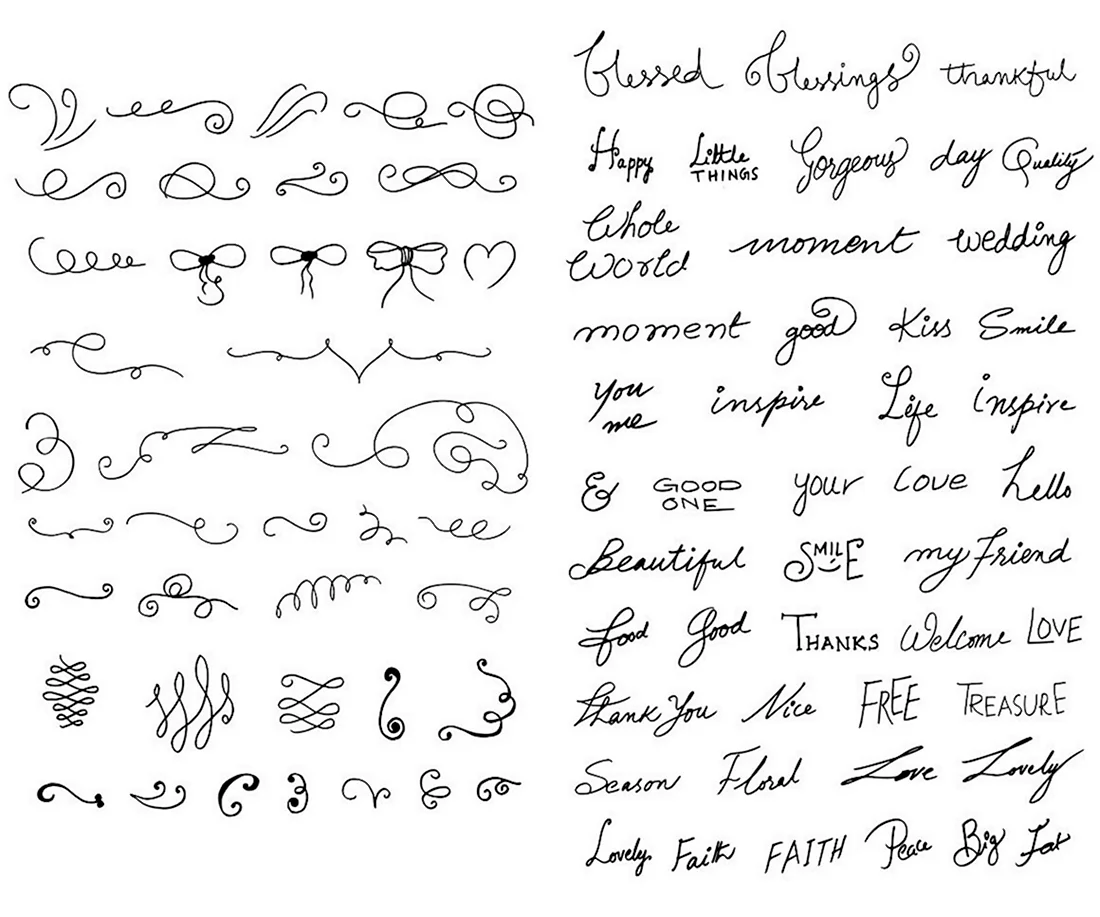 Blessed Blessings thankful
Happy Little THINGS Gorgeous day Quality
Whole World moment wedding
moment good Kiss Smile
you me inspire Life inspire
& GOOD ONE your Love hello
Beautiful SMILE my Friend
food Good THANKS Welcome LOVE
Thank You Nice FREE TREASURE
Season Floral Love Lovely
Lovely Faith FAITH Peace Big Fat